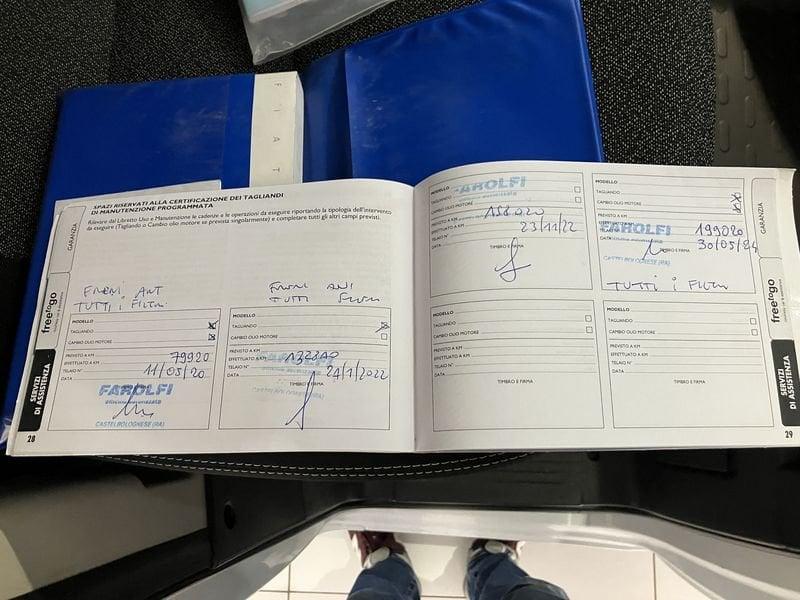 F I A T
SPAZI RISERVATI ALLA CERTIFICAZIONE DEI TAGLIANDI
DI MANUTENZIONE PROGRAMMATA
Rilevare dal Libretto Uso e Manutenzione le cadenze e le operazioni da eseguire riportando la tipologia dell'intervento
da eseguire (Tagliando o Cambio olio motore se prevista singolarmente) e completare tutti gli altri campi previsti.
GARANZIA
freetogo
SERVIZI
DI ASSISTENZA
FRENI ANT
TUTTI i FILTRI
MODELLO
TAGLIANDO
CAMBIO OLIO MOTORE
PREVISTO A KM
EFFETTUATO A KM 79920
TELAIO N°
DATA 11/05/20
FAROLFI
CASTELBOLOGNESE (RA)
28
TUTTI
MODELLO
TAGLIANDO
CAMBIO OLIO MOTORE
PREVISTO A KM
EFFETTUATO A KM
TELAIO N°
DATA 24/1/2022
TIMBRO E FIRMA
FAROLFI
MODELLO
TAGLIANDO
CAMBIO OLIO MOTORE
PREVISTO A KM
EFFETTUATO A KM 158020
TELAIO N° 23/11/22
DATA
TIMBRO E FIRMA
MODELLO
TAGLIANDO
CAMBIO OLIO MOTORE
PREVISTO A KM
FAROLFI
EFFETTUATO A KM 199020
TELAIO N° 30/05/24
DATA
TIMBRO E FIRMA
CASTELBOLOGNESE (RA)
TUTTI i FILTRI
MODELLO
TAGLIANDO
CAMBIO OLIO MOTORE
PREVISTO A KM
EFFETTUATO A KM
TELAIO N°
DATA
TIMBRO E FIRMA
MODELLO
TAGLIANDO
CAMBIO OLIO MOTORE
PREVISTO A KM
EFFETTUATO A KM
TELAIO N°
DATA
TIMBRO E FIRMA
GARANZIA
freetogo
SERVIZI
DI ASSISTENZA
29